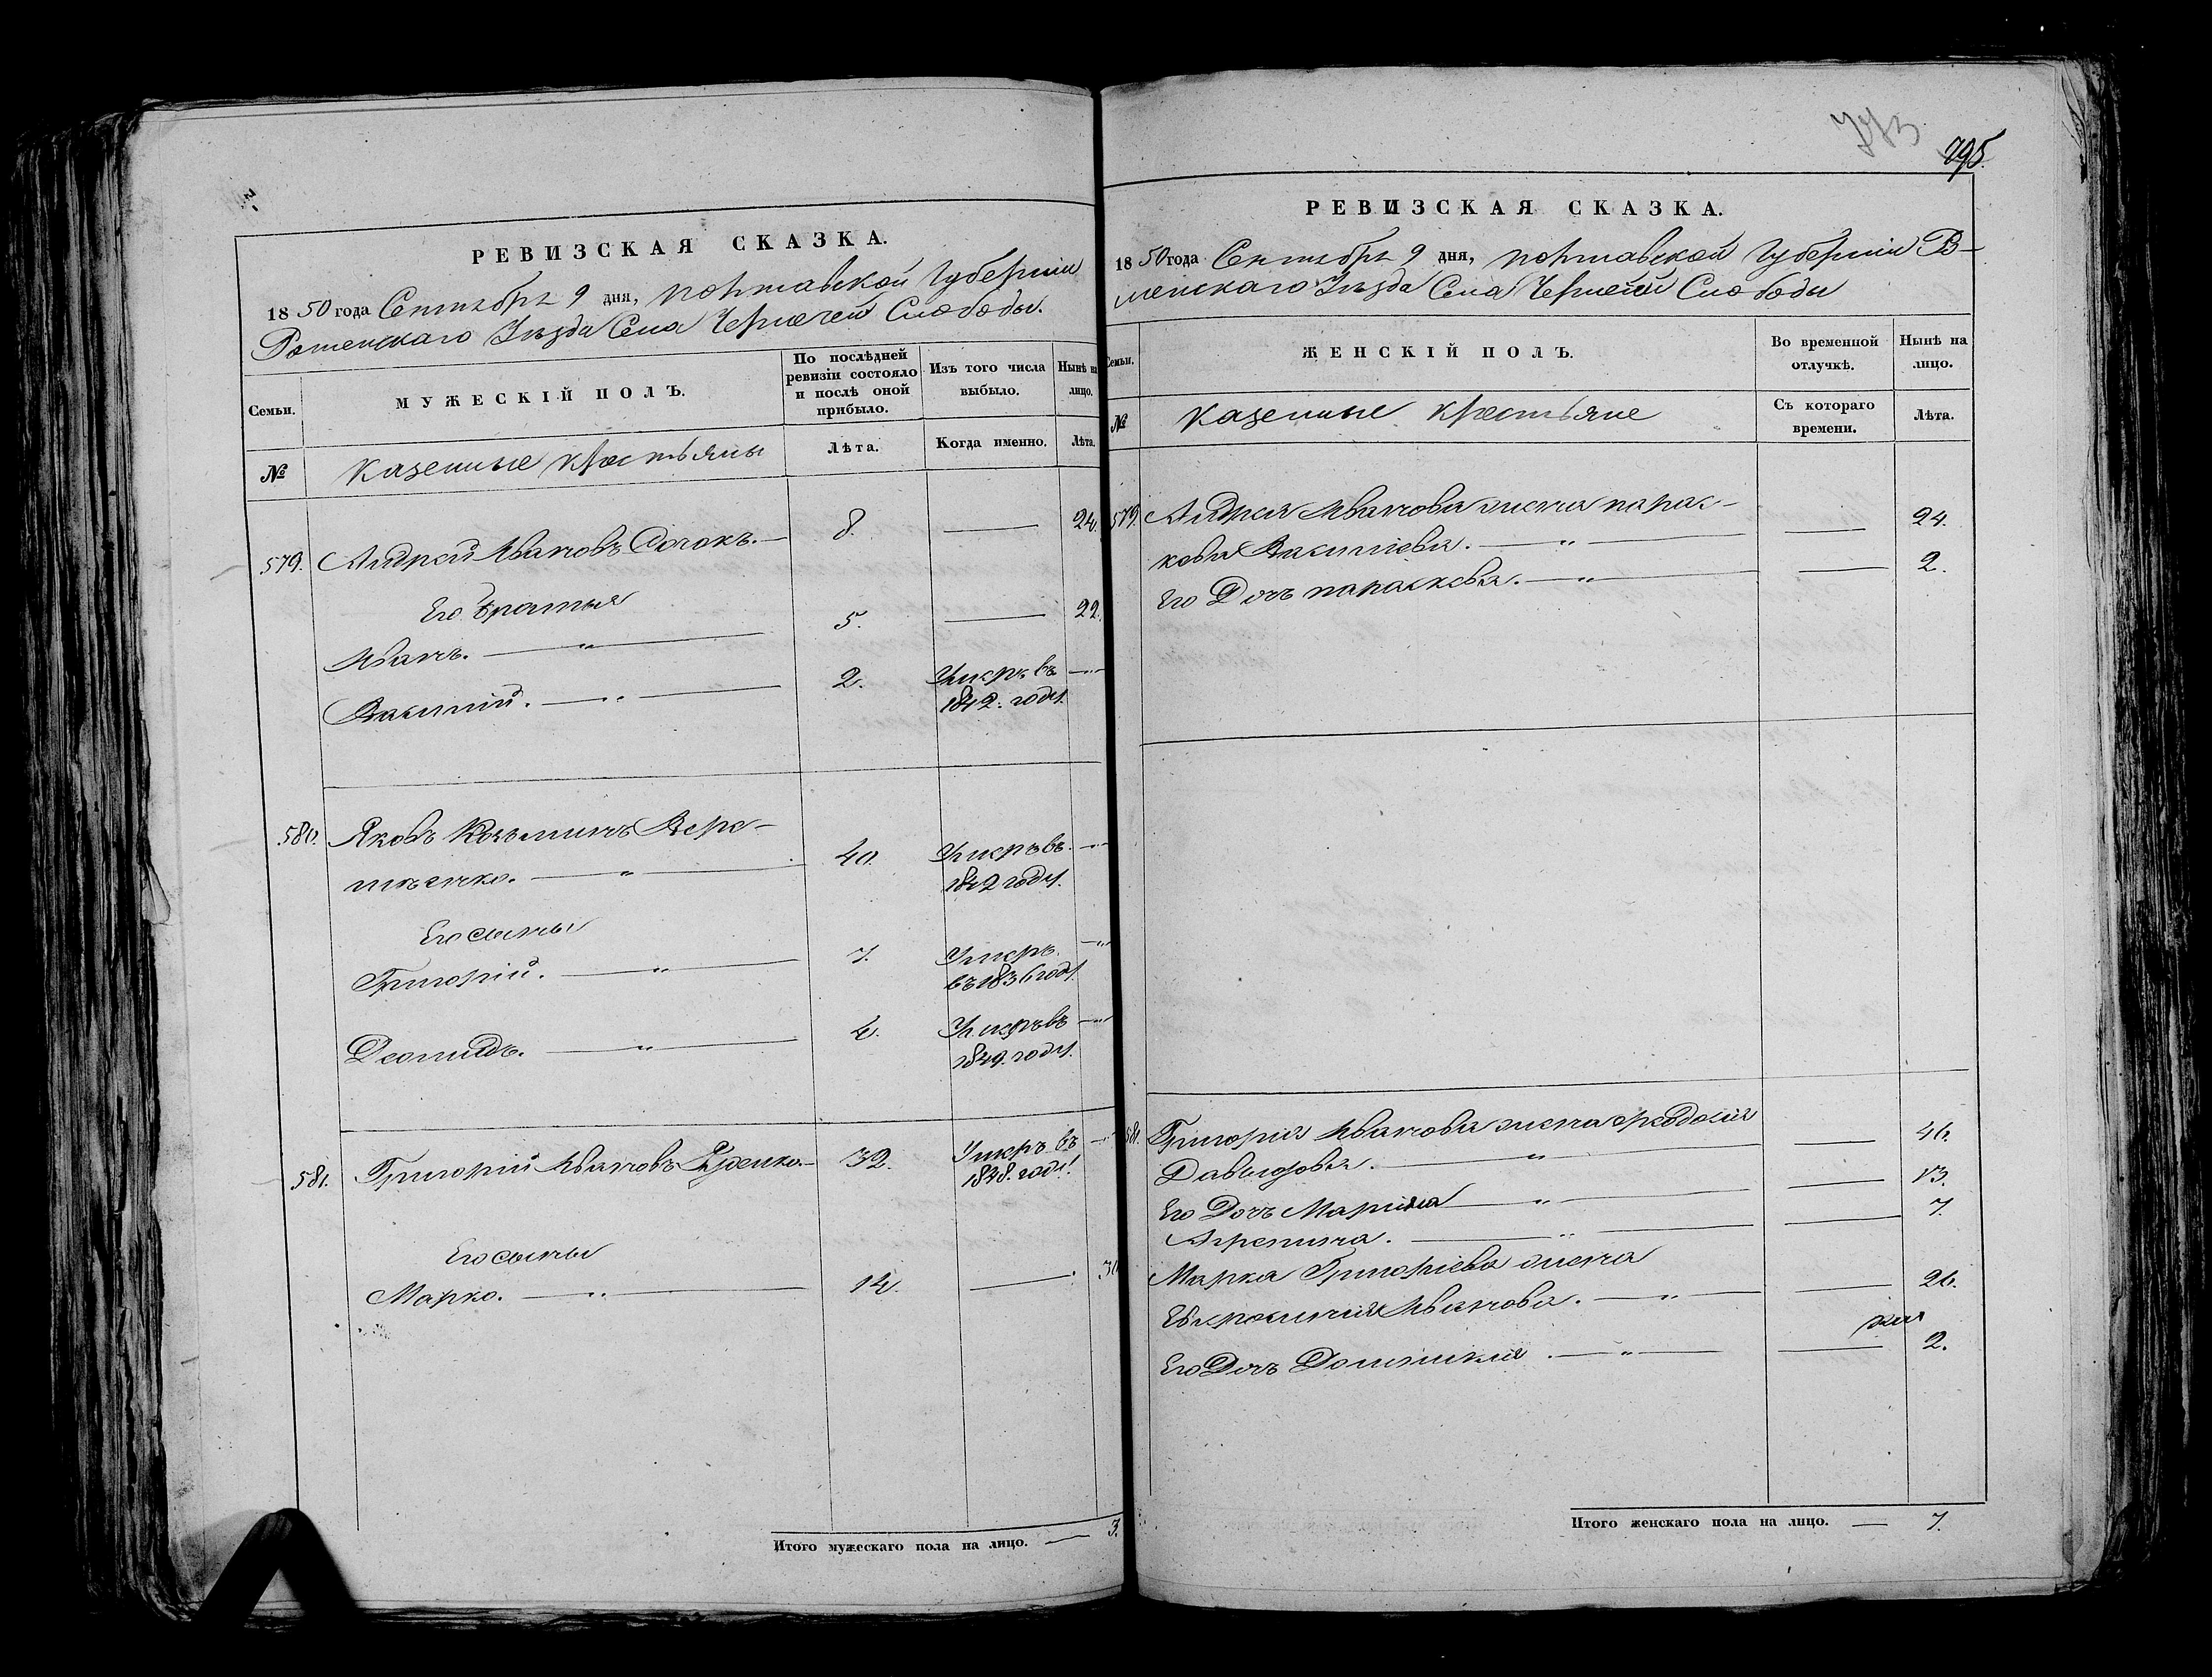 РЕВИЗСКАЯ СКАЗКА.
1850 года Сентября 9 дня, Полтавской Губернии
Роменскаго Уезда Села Чернечей Слободы.
Семьи.
МУЖЕСКІЙ ПОЛЪ.
По послѣдней
ревизіи состояло
и послѣ оной
прибыло.
Изъ того числа
выбыло.
Нынѣ на
лицо.
№
Казенные крестьяны
Лѣта.
Когда именно.
Лѣта.
579. Андрей Ивановъ — 8. — 24.
Его братья
Иванъ. — " — 5. — 22.
Василій. — " — 2. Умеръ въ — " —
1842. году.
580. Яковъ Козьминъ
40. Умеръ въ — " —
1842 году.
Его сыны
Григорій. — " — 7. Умеръ — " —
въ 1836 году.
Деомидъ. — " — 4. Умеръ въ — " —
1849. году.
581. Григорій Ивановъ Руденко — 32. Умеръ въ — " —
1848. году.
Его сыны
Марко. — " — 14. — 30
Итого мужескаго пола на лицо. — 3.
795.
РЕВИЗСКАЯ СКАЗКА.
1850 года Сентября 9 дня, Полтавской Губерніи Ро-
менскаго Уезда Села Чернечей Слободы
Семьи.
ЖЕНСКІЙ ПОЛЪ.
Во временной
отлучкѣ.
Нынѣ на
лицо.
№
Казенные крестьяне
Съ котораго
времени.
Лѣта.
579. Андрея Иванова жена Парас-
ковья Васильева. — " — 24.
Его Дочь Парасковья. — " — 2.
581. Григорія Иванова жена Феодосія
Давыдова. — " — 46.
Его Дочь Марина — " — 13.
Агрепина. — " — 7.
Марка Григорьева жена
Евфросинія Иванова. — " — 26.
Его Дочь Домникія — " — 2.
Итого женскаго пола на лицо. — 7.